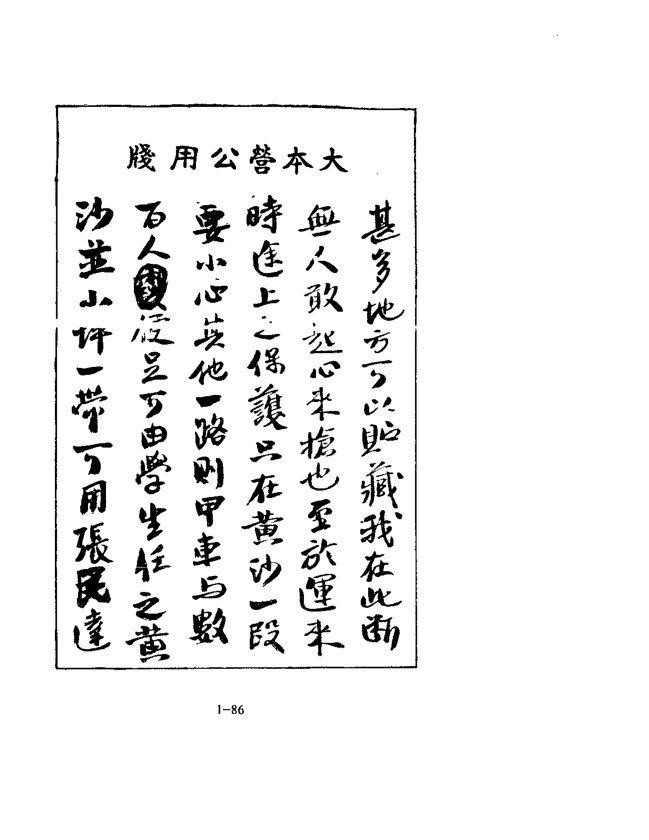 大本營公用牋
甚多地方可以貼藏我在此斷
無人敢起心來搶也至於運來
時途上之保護只在黃沙一段
要小心其他一路則甲車与數
百人便足可由學生任之黃
沙並小坪一帶可用張民達
1-86